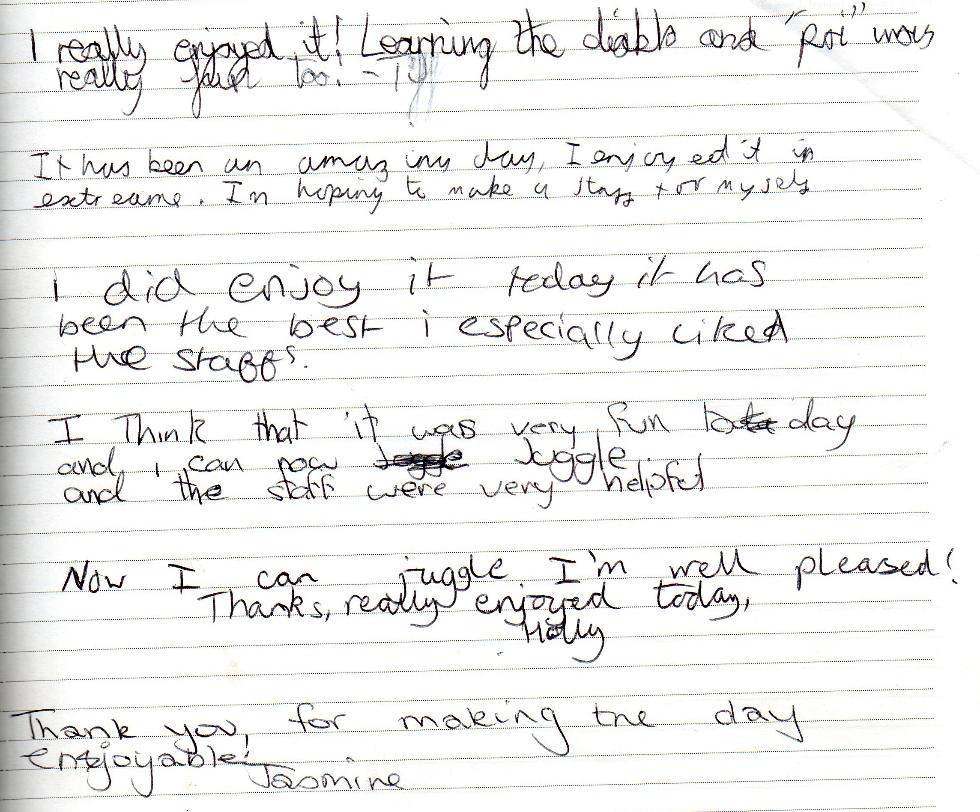 I really enjoyed it! Learning the diablo and "Poi" was
really good too! -
It has been an amazing day, I enjoyed it in
extreame. I'm hoping to make a staff for myself
I did enjoy it today it has
been the best i especially liked
the staffs.
I Think that it was very fun day
and i can now Juggle
and the staff were very helpful
Now I can juggle. I'm well pleased!
Thanks, really enjoyed today,
Holly
Thank you, for making the day
enjoyable!
Jasmine